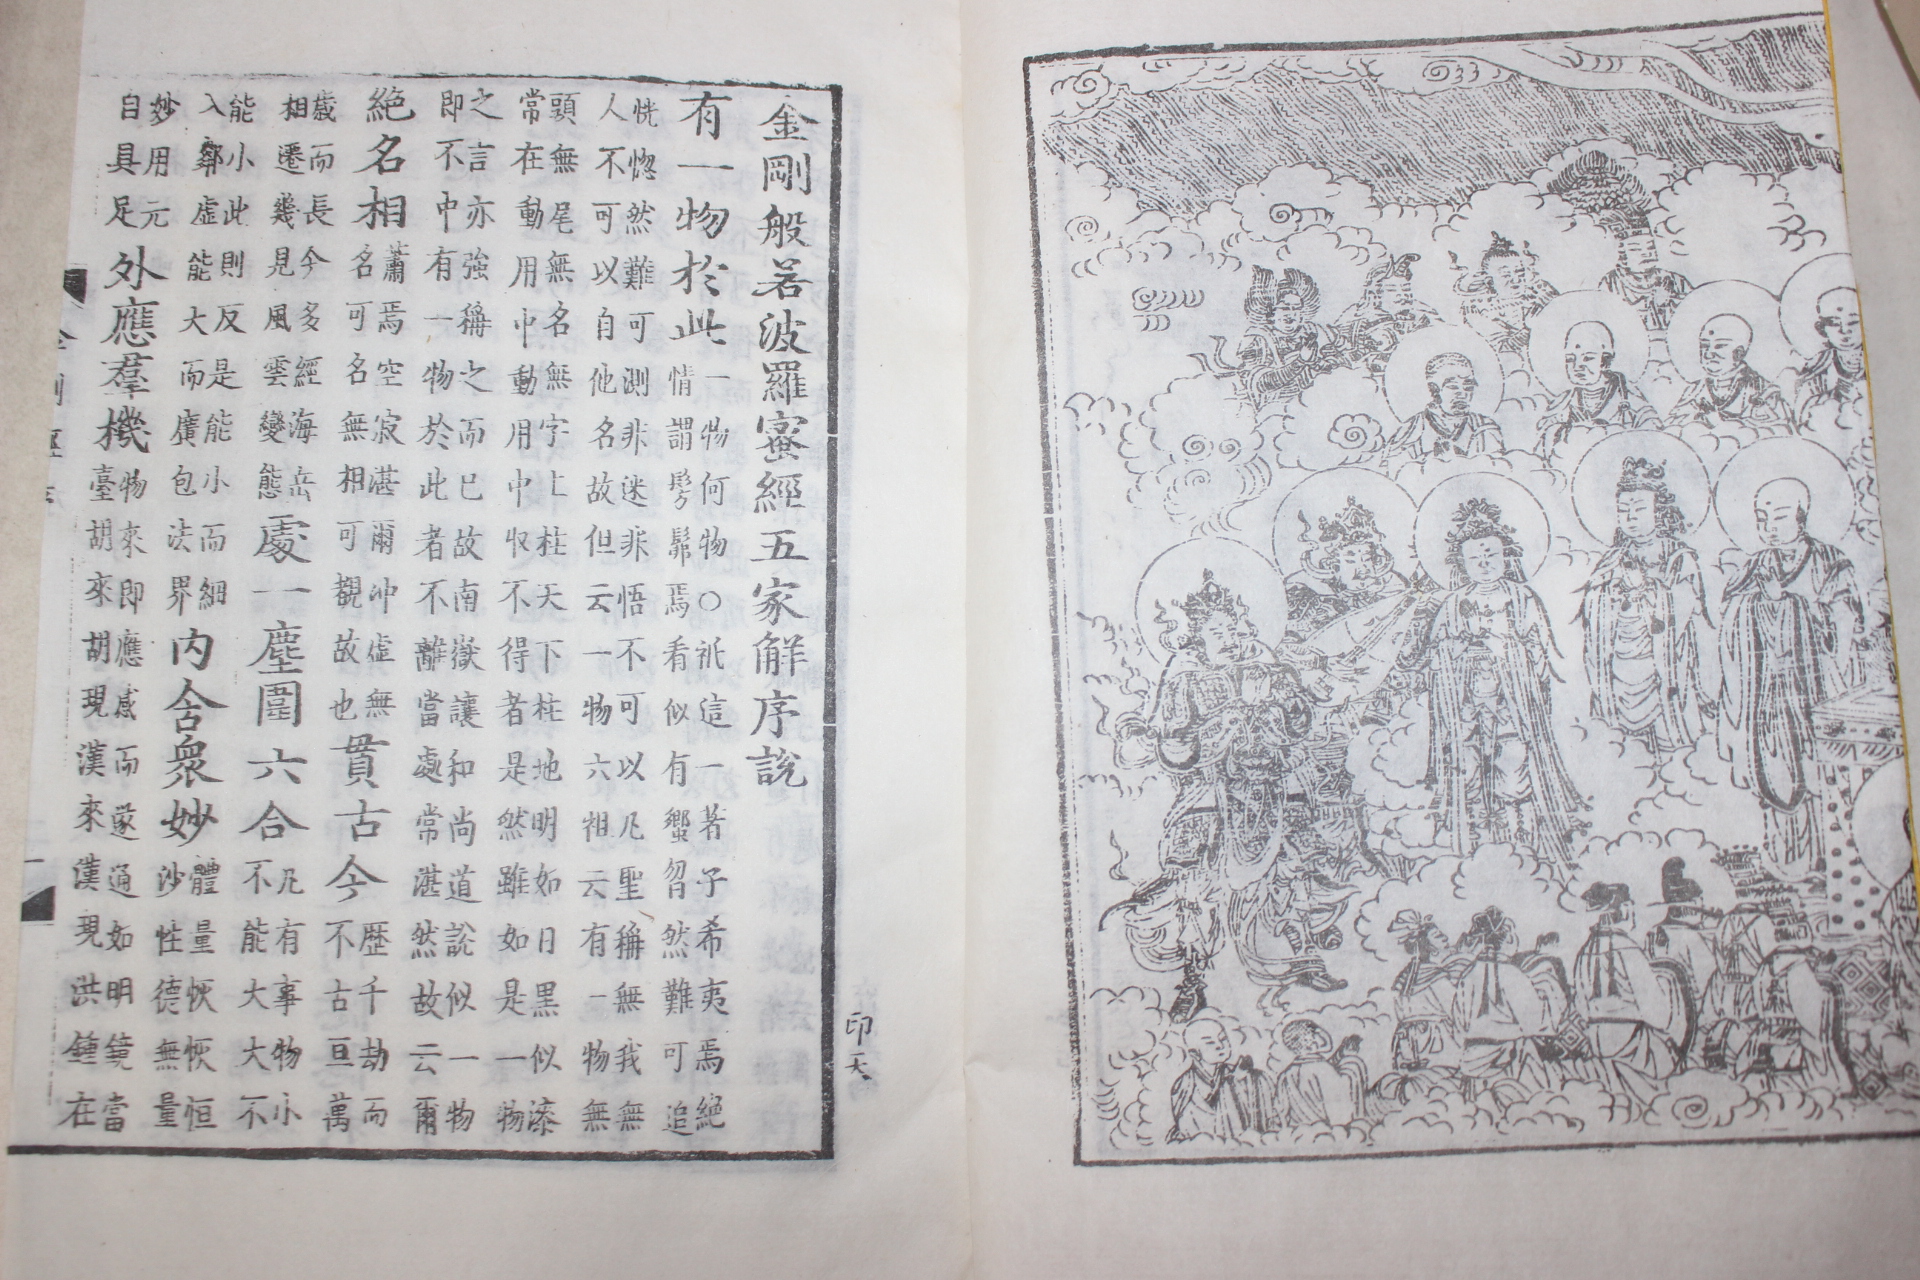 金剛般若波羅蜜經五家解序說
有一物於此
一物何物○祇這一著子希夷焉絕
情謂髣髴焉看似有蠁曶然難可追
恍惚然難可測非迷非悟不可以凡聖稱無我無
人不可以自他名故但云一物六祖云有一物無
頭無尾無名無字上柱天下柱地明如日黑似漆
常在動用中動用中収不得者是然雖如是一物
之言亦強稱之而已故南嶽讓和尚道說似一物
即不中有一物於此者不離當處常湛然故云爾
絕名相
蕭焉空寂湛爾冲虛無
名可名無相可覩故也
貫古今
歷千劫而
不古亘萬
歲而長今多經海岳
相遷幾見風雲變態
處一塵圍六合
凡有事物小
不能大大不
能小此則反是能小而細
入鄰虛能大而廣包法界
內含衆妙
體量恢恢恒
沙性德無量
妙用元
自具足
外應羣機
物來即應感而遂通如明鏡當
臺胡來胡現漢來漢現洪鍾在
印天